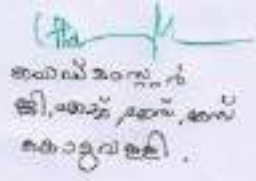 ഹെഡ് മാസ്റ്റർ
ജി.എച്ച്.എസ്.എസ്
കൊടുവള്ളി.